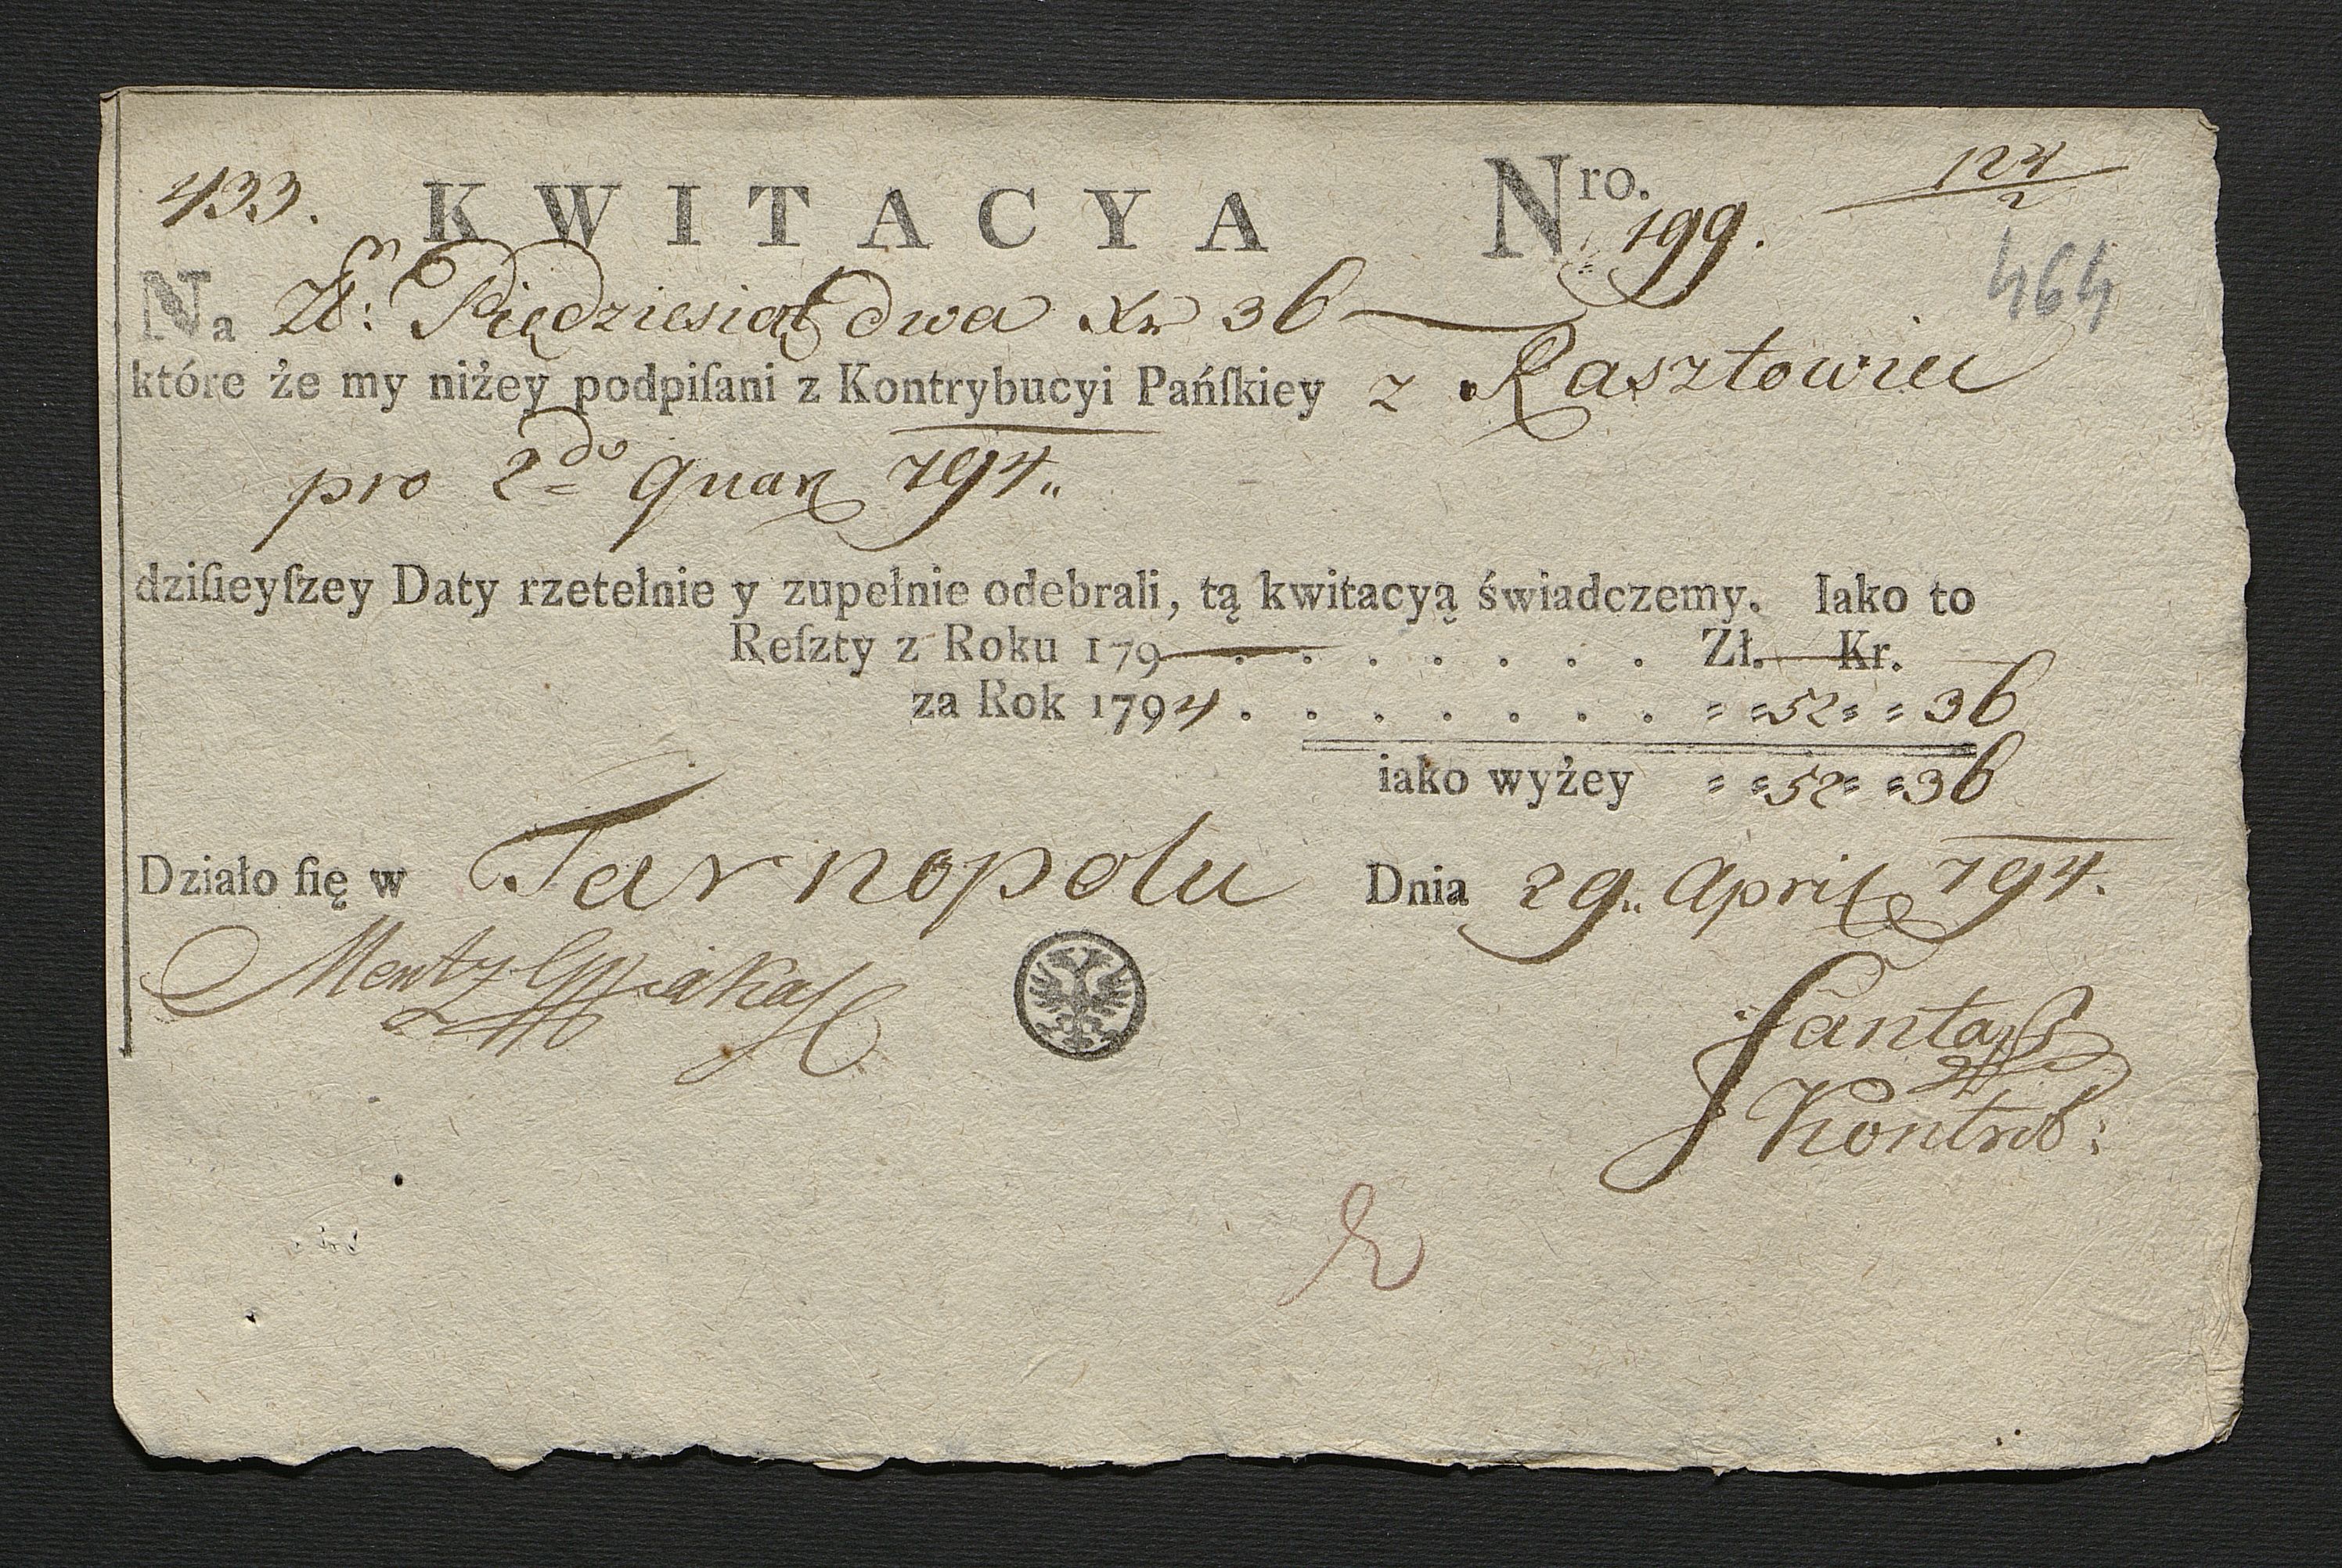 433. KWITACYA Nro. 199. 124/2
464
Na Złr: Piędziesiąt dwa Xr 36
które że my niżey podpiſani z Kontrybucyi Pańſkiey z Rasztowiec
pro 2do quar 794.
dziſieyſzey Daty rzetełnie y zupełnie odebrali, tą kwitacyą świadczemy. Iako to
Reſzty z Roku 179 . . . . . . . Zł. Kr.
za Rok 1794 . . . . . . . 52 36
iako wyżey 52 36
Działo ſię w Tarnopolu Dnia 29. April 794.
Kontrol:
2